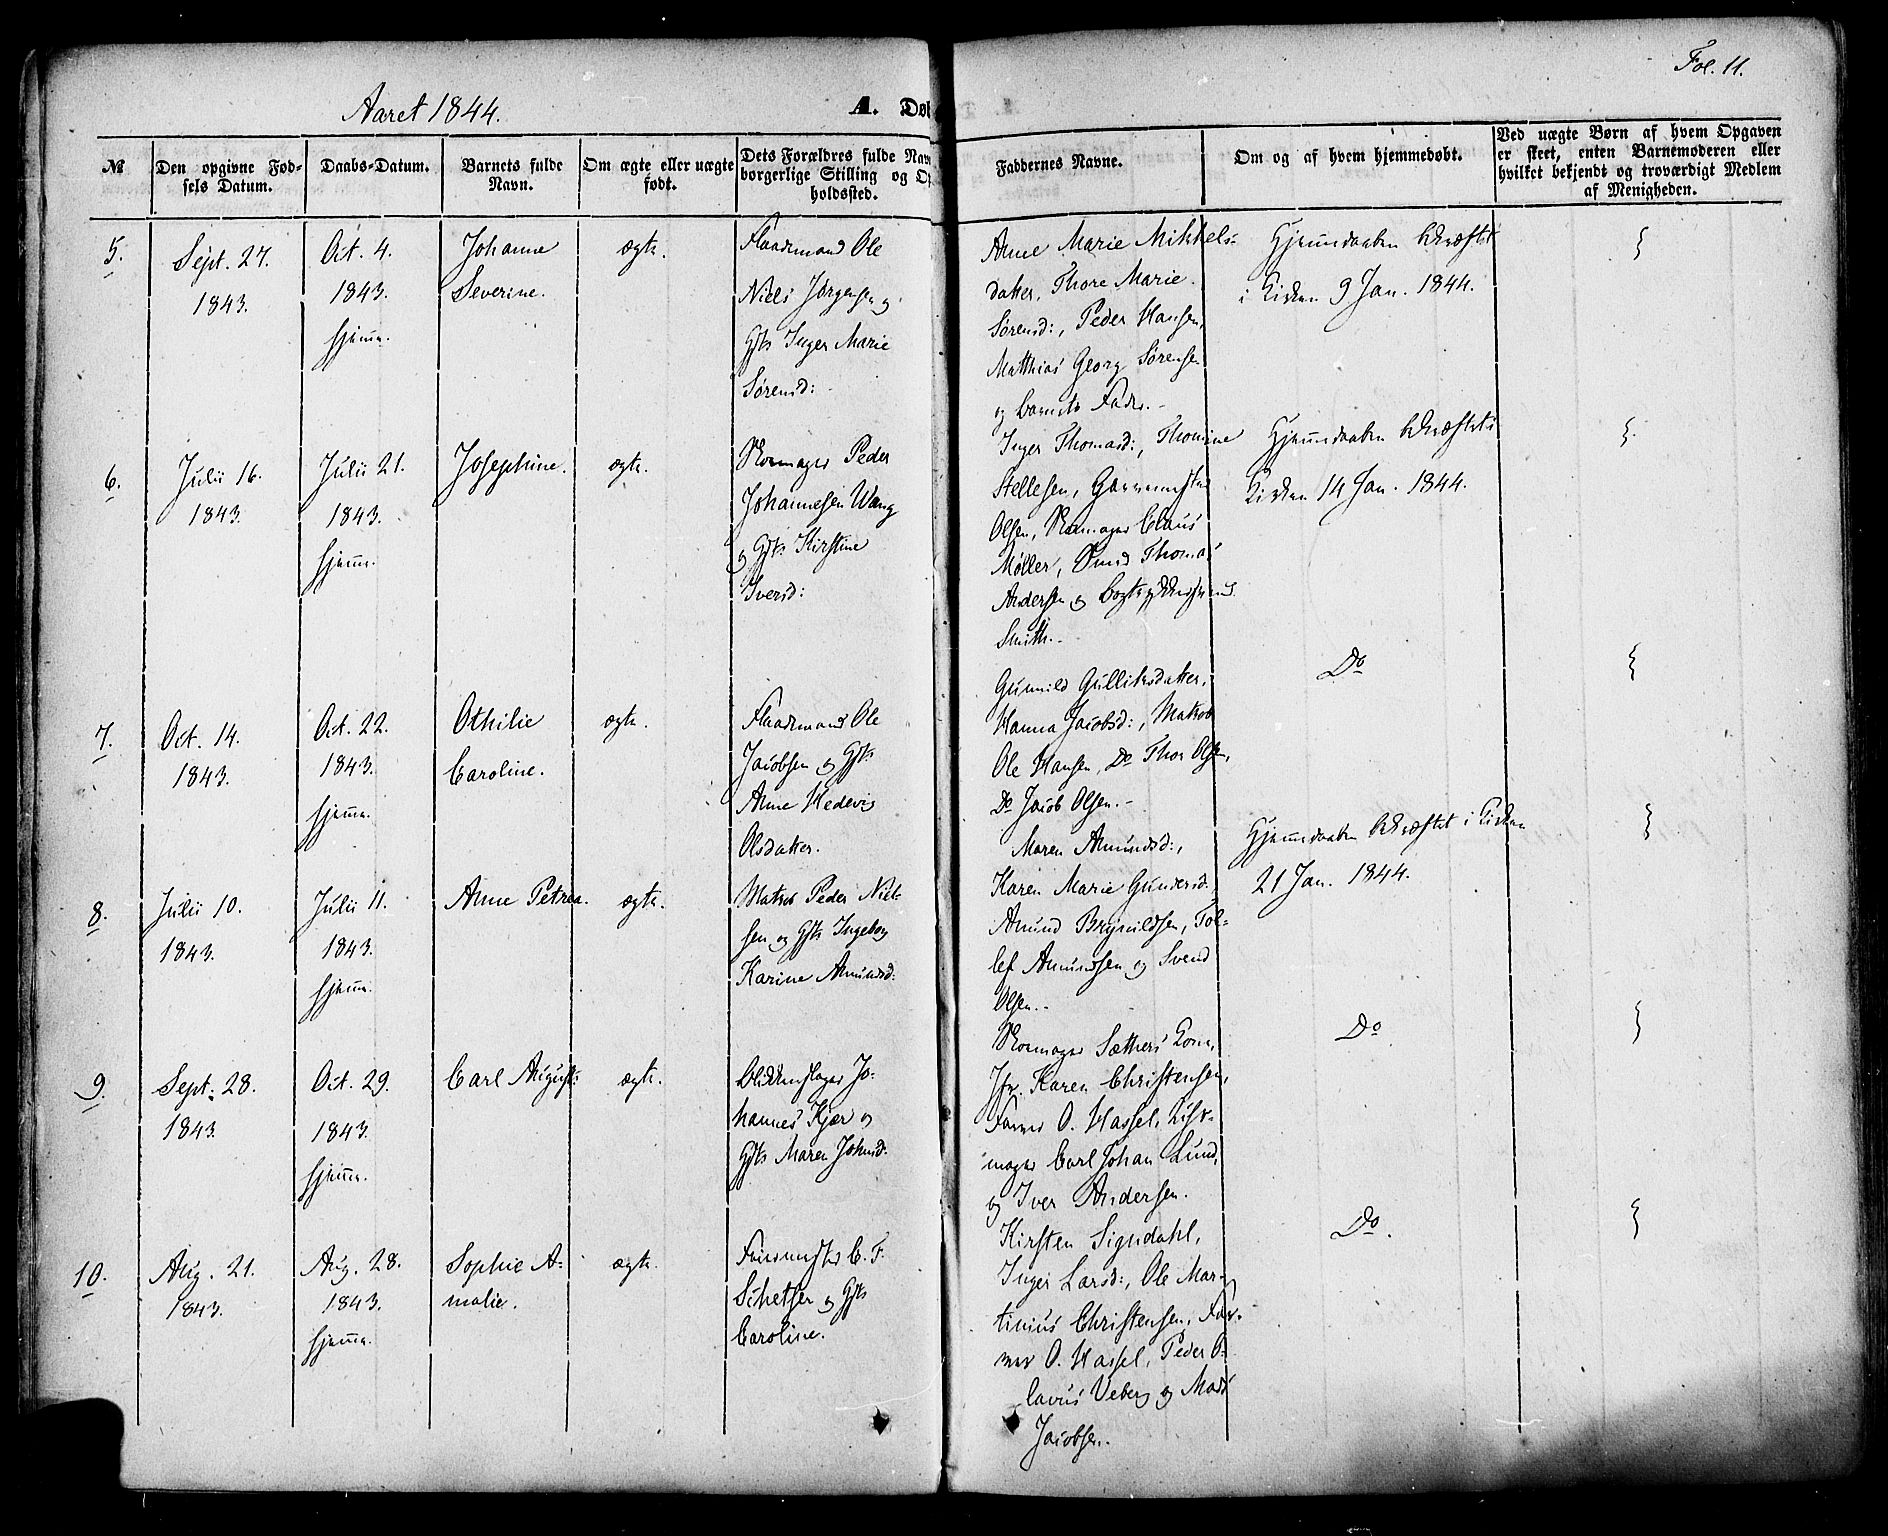 Fol. 11.
Aaret 1844.
A. Døb
№
Den opgivne Fød-
sels Datum.
Daabs-Datum.
Barnets fulde
Navn.
Om ægte eller uægte
født.
Dets Forældres fulde Nav
borgerlige Stilling og Op
holdssted.
Faddernes Navne.
Om og af hvem hjemmedøbt.
Ved uægte Børn af hvem Opgaven
er skeet, enten Barnemoderen eller
hvilket bekjendt og troværdigt Medlem
af Menigheden.
5.
Sept. 27.
1843.
Oct. 4.
1843.
hjemme.
Johanne
Severine.
ægte.
Ole
Niels Jørgensen og
Inger Marie
Sørensd:
Anne Marie Mikkels-
datter, Thore Marie
Sørensd:, Peder Hansen,
Matthias Georg Sørensen
og Barnets Fader.
Hjemmedaaben bekræftet
i Kirken 9 Jan. 1844.
6.
Julii 16.
1843.
Julii 21.
1843.
hjemme.
Josephine.
ægte.
Skomager Peder
Johannesen Wang
og Kirstine
Iversd:
Inger Thomasd:, Thomine
Stellesen,
Olsen, Skomager Claus
Møller, Thomas
Andersen og
Smith.
Hjemmedaaben bekræftet i
Kirken 14 Jan. 1844.
7.
Oct. 14.
1843.
Oct. 22.
1843.
hjemme.
Othilie
Caroline.
ægte.
Ole
Jacobsen og
Anne Hedevig
Olsdatter.
Gunnild Gulliksdatter,
Hanna Jacobsd:, Matros
Ole Hansen, Do Thor Olsen,
Do Jacob Olsen.
Do
8.
Julii 10.
1843.
Julii 11.
1843.
hjemme.
Anne Petrea.
ægte.
Matros Peder Niel-
sen og Ingeborg
Karine Amundsd:
Maren Amundsd:,
Karen Marie Gundersd:
Amund Brynildsen, Tol-
lef Amundsen og Svend
Olsen.
Hjemmedaaben bekræftet i Kirken
21 Jan. 1844.
9.
Sept. 28.
1843.
Oct. 29.
1843.
hjemme.
Carl August:
ægte.
Blikkenslager Jo-
hannes Kjær og
Maren Johnsd:
Skomager Sæthers Kone,
Jfr. Karen Christensen,
Farver O. Hassel,
mager Carl Johan Lund,
og Iver Andersen.
Do
10.
Aug. 21.
1843.
Aug. 28.
1843.
hjemme.
Sophie A-
malie.
ægte.
C. F.
og
Caroline.
Kirsten Signdahl,
Inger Larsd:, Ole Mar-
tinius Christensen, Far-
ver O. Hassel, Peder O-
lavus Veberg og Mads
Jacobsen.
Do.